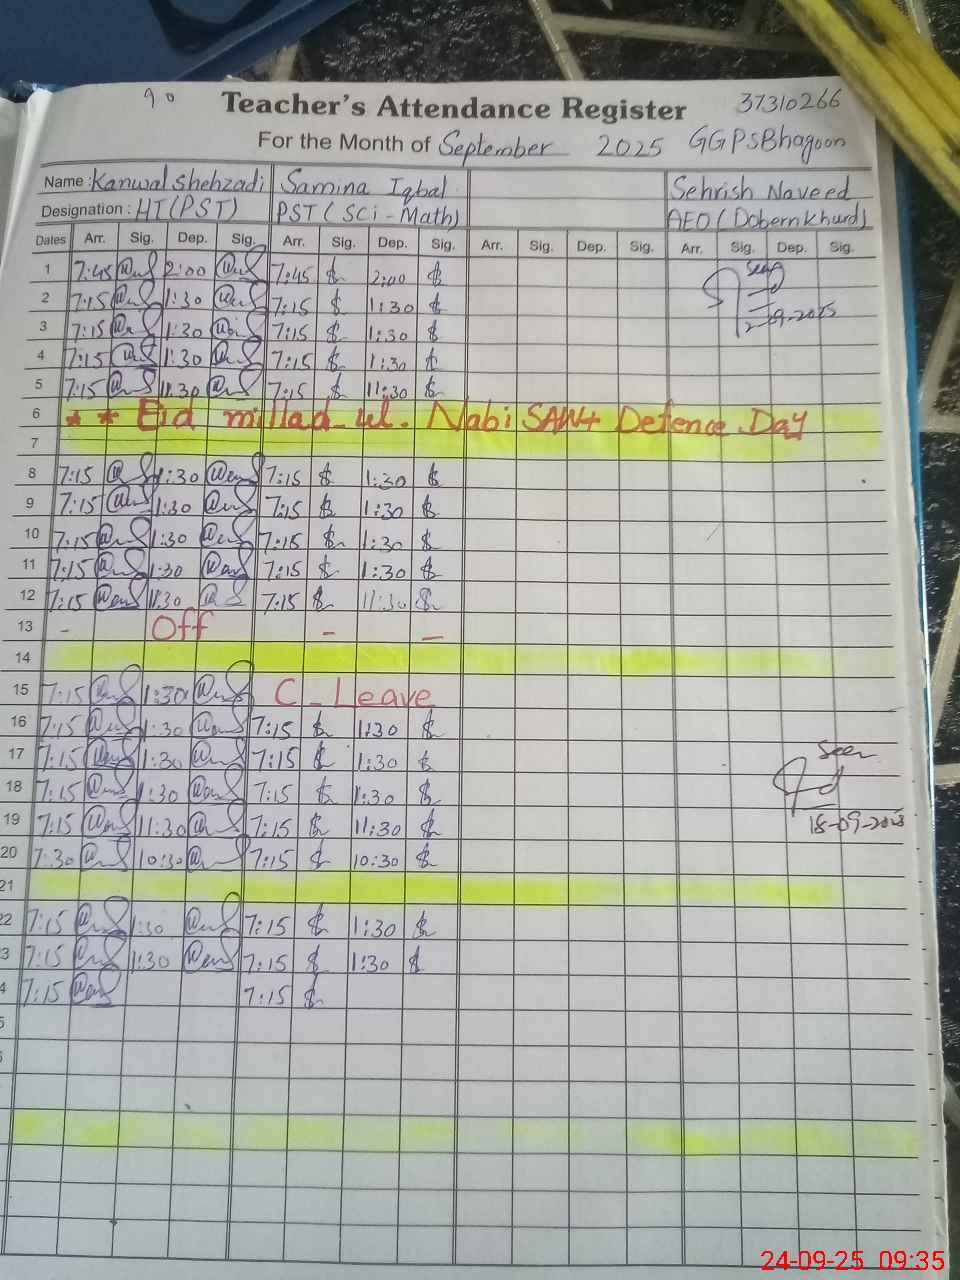 90 Teacher's Attendance Register 37310266
For the Month of September 2025 GGPSBhagoon
Name : Kanwal Shehzadi Samina Iqbal Sehrish Naveed
Designation : HT(PST) PST (Sci-Math) AEO (Dobern Khurd)
Dates Arr. Sig. Dep. Sig. Arr. Sig. Dep. Sig. Arr. Sig. Dep. Sig. Arr. Sig. Dep. Sig.
1 7:45 2:00 7:45 2:00 Seen
2 7:15 1:30 7:15 1:30 2-9-2025
3 7:15 1:30 7:15 1:30
4 7:15 1:30 7:15 1:30
5 7:15 11:30 7:15 11:30
6 * * Eid millad-ul. Nabi SAW4 Defence Day
7
8 7:15 1:30 7:15 1:30
9 7:15 1:30 7:15 1:30
10 7:15 1:30 7:15 1:30
11 7:15 1:30 7:15 1:30
12 7:15 11:30 7:15 11:30
13 - Off - -
14
15 7:15 1:30 C-Leave
16 7:15 1:30 7:15 1:30
17 7:15 1:30 7:15 1:30 Seen
18 7:15 1:30 7:15 1:30
19 7:15 11:30 7:15 11:30 18-09-2025
20 7:30 10:30 7:15 10:30
21
22 7:15 1:30 7:15 1:30
3 7:15 1:30 7:15 1:30
4 7:15 7:15
24-09-25 09:35